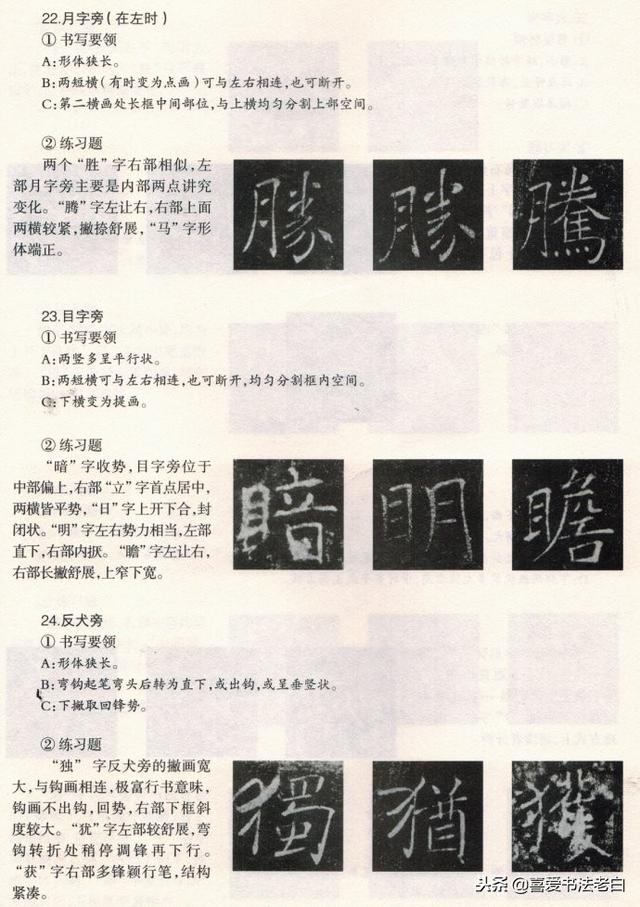 22.月字旁(在左时)
①书写要领
A:形体狭长。
B:两短横(有时变为点画)可与左右相连,也可断开。
C:第二横画处长框中间部位,与上横均匀分割上部空间。
②练习题
两个“胜”字右部相似,左
部月字旁主要是内部两点讲究
变化。“腾”字左让右,右部上面
两横较紧,撇捺舒展,“马”字形
体端正。
勝 勝 騰
23.目字旁
①书写要领
A:两竖多呈平行状。
B:两短横可与左右相连,也可断开,均匀分割框内空间。
C:下横变为提画。
②练习题
“暗”字收势,目字旁位于
中部偏上,右部“立”字首点居中,
两横皆平势,“日”字上开下合,封
闭状。“明”字左右势力相当,左部
直下,右部内抠。“瞻”字左让右,
右部长撇舒展,上窄下宽。
暗 明 瞻
24.反犬旁
①书写要领
A:形体狭长。
B:弯钩起笔弯头后转为直下,或出钩,或呈垂竖状。
C:下撇取回锋势。
②练习题
“独”字反犬旁的撇画宽
大,与钩画相连,极富行书意味,
钩画不出钩,回势,右部下框斜
度较大。“犹”字左部较舒展,弯
钩转折处稍停调锋再下行。
“获”字右部多锋颖行笔,结构
紧凑。
獨 猶 獲
头条@喜爱书法老白